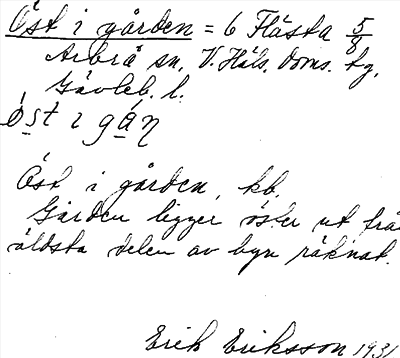 Öst i gården = 6 Flästa 5/8
Arbrå sn, V. Häls. doms. tg,
Gävleb. l.
ö́s̱t ı gá̱ṇ
Öst i gården, kb.
Gården ligger öster ut frå
äldsta delen av byn räknat.
Erik Eriksson 1931